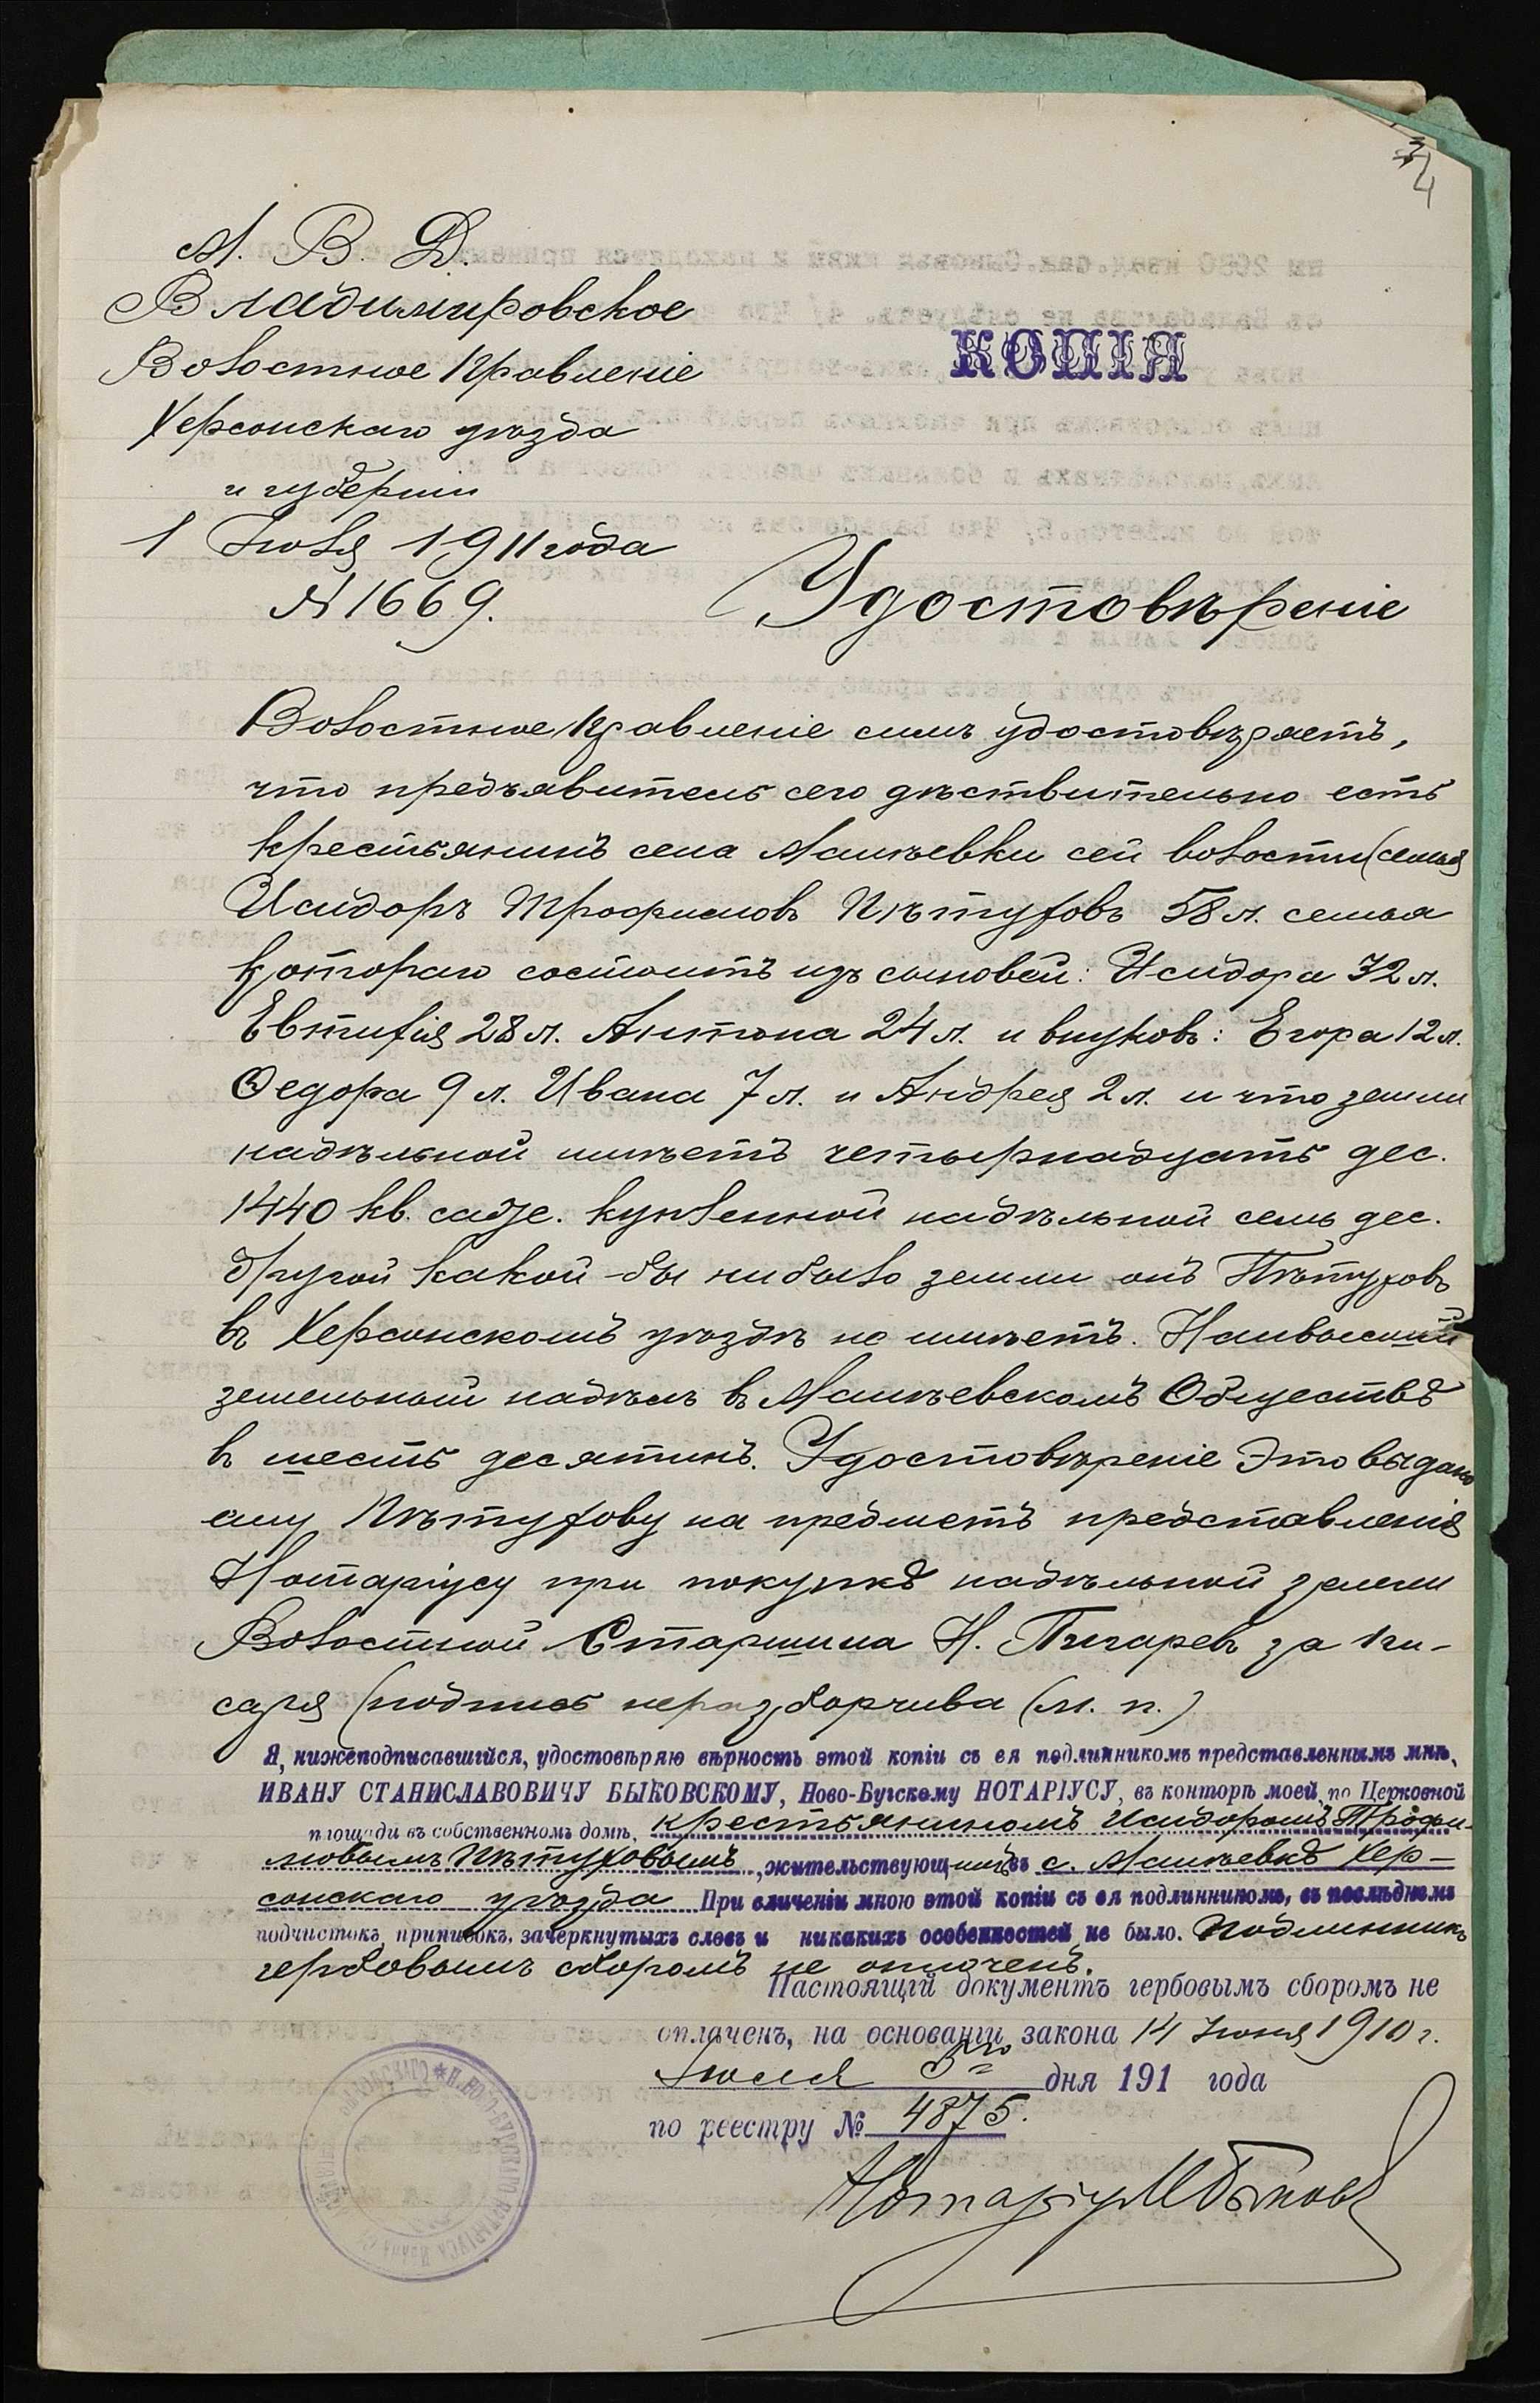 М. В. Д.
Владимировское
Волостное Правленіе
Херсонскаго уѣзда
и губерніи
1 Іюля 1911 года
№ 1669.
КОПІЯ
Удостовѣреніе
Волостное Правленіе симъ удостовѣряетъ,
что предъявитель сего дѣствительно есть
крестьянинъ села Малѣевки сей волости (семья
Исидоръ Трофимовъ Пѣтуховъ 58 л. семья
котораго состоитъ изъ сыновей: Исидора 32 л.
Евтихія 28 л. Антона 24 л. и внуковъ: Егора 12 л.
Ѳедора 9 л. Ивана 7 л. и Андрея 2 л. и что земли
надѣльной имѣетъ четырнадцать дес.
1440 кв. саж. купленной надѣльной семь дес.
другой какой-бы нибыло земли онъ Пѣтуховъ
въ Херсонскомъ уѣздѣ не имѣетъ. Наивысшій
земельный надѣлъ въ Малѣевскомъ Обществѣ
в шесть десятинъ. Удостовѣреніе это выдано
ему Пѣтухову на предметъ представленія
Нотаріусу при покупкѣ надѣльной земли
Волостной Старшина Н. Пигаревъ за Пи-
саря (подпись неразборчива (м. п.)
Я, нижеподписавшійся, удостовѣряю вѣрность этой копіи съ ея подлинникомъ представленнымъ мнѣ,
ИВАНУ СТАНИСЛАВОВИЧУ БЫКОВСКОМУ, Ново-Бугскому НОТАРІУСУ, въ конторѣ моей, по Церковной
площади въ собственномъ домѣ, крестьяниномъ Исидоромъ Трофи-
мовымъ Пѣтуховымъ, жительствующимъ въ с. Малѣевкѣ Хер-
сонскаго уѣзда При сличеніи мною этой копіи съ ея подлинникомъ, въ послѣднемъ
подчистокъ, приписокъ, зачеркнутыхъ словъ и никакихъ особенностей не было. Подлинникъ
гербовымъ сборомъ не оплаченъ.
Настоящій документъ гербовымъ сборомъ не
оплаченъ, на основаніи закона 14 Іюня 1910 г.
Іюля 5го дня 191 года
по реестру № 4875.